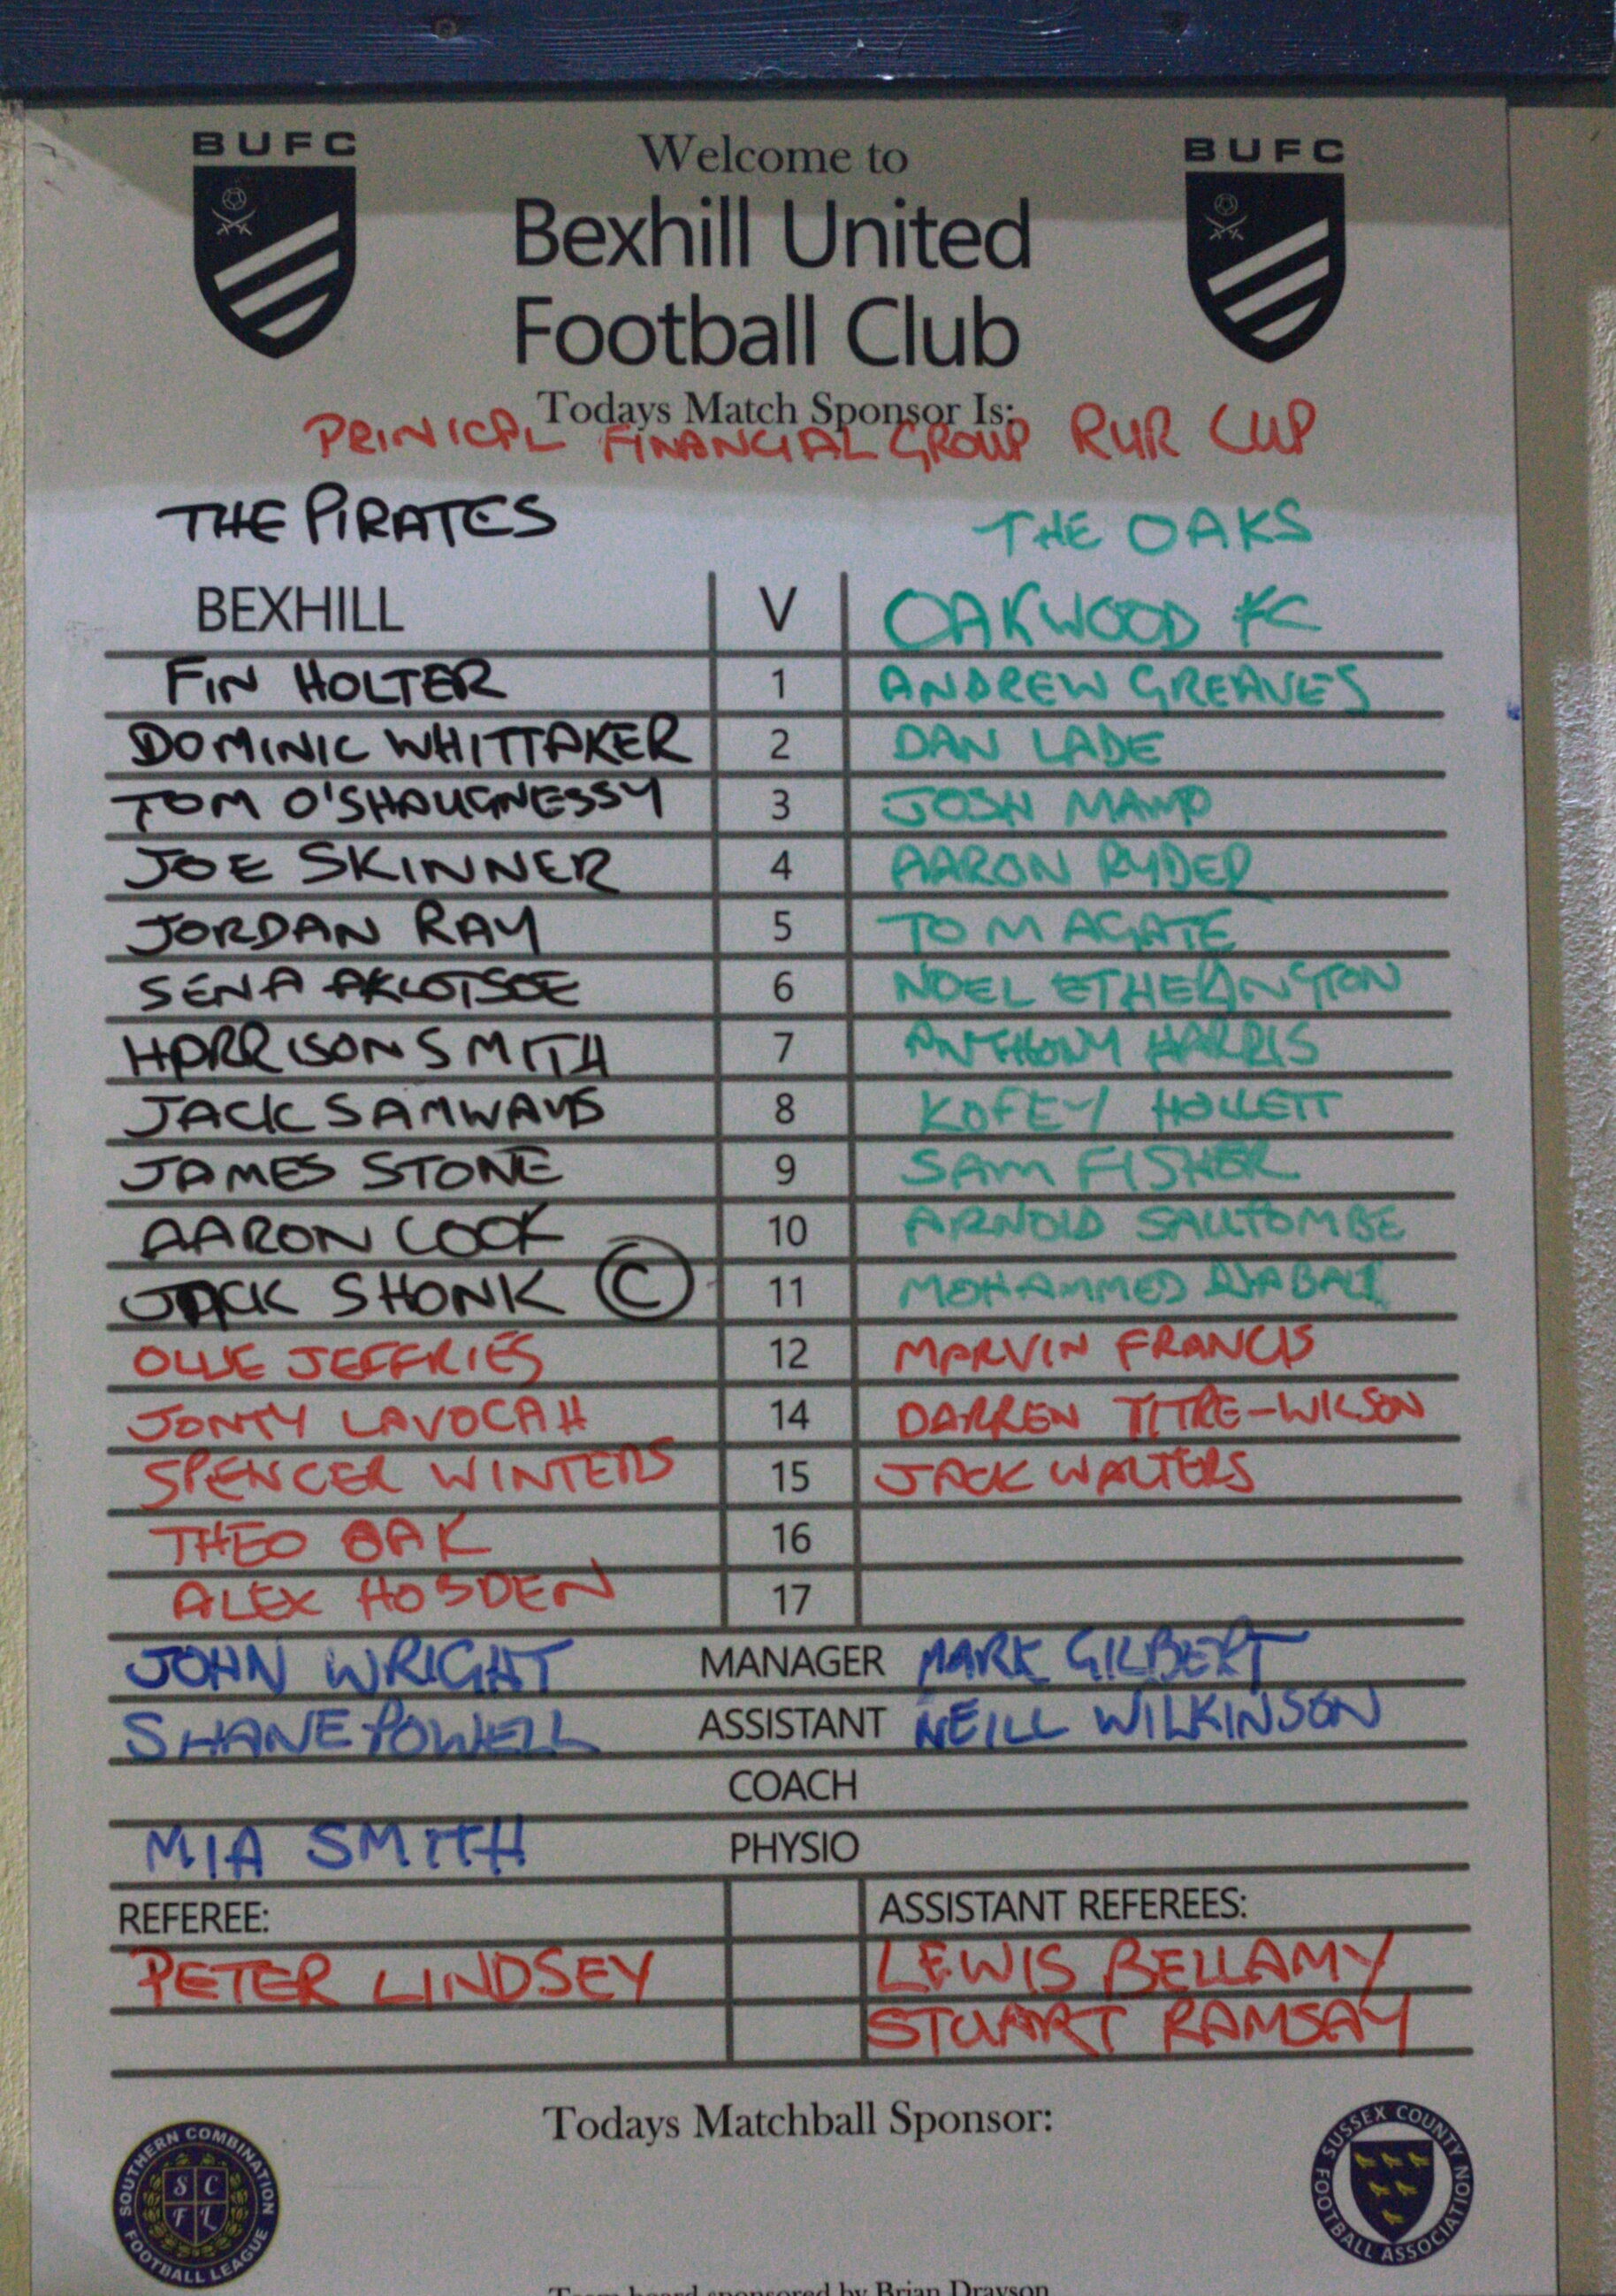 BUFC
BUFC
Welcome to
Bexhill United
Football Club
Todays Match Sponsor Is:
PRINICPAL FINANCIAL GROUP RUR CUP
THE PIRATES THE OAKS
BEXHILL V OAKWOOD FC
FIN HOLTER 1 ANDREW GREAVES
DOMINIC WHITTAKER 2 DAN LADE
TOM O'SHAUGNESSY 3 JOSH MAMP
JOE SKINNER 4 AARON RYDER
JORDAN RAY 5 TOM AGATE
SENA AKLOTSOE 6 NOEL ETHERINGTON
HARRISON SMITH 7 ANTHONY HARRIS
JACK SAMWAYS 8 KOFEY HOLLETT
JAMES STONE 9 SAM FISHER
AARON COOK 10 ARNOLD
JACK SHONK © 11 MOHAMMED
OLLIE JEFFRIES 12 MARVIN FRANCIS
JONTY LAVOCAH 14 DARREN TITRE-WILSON
SPENCER WINTERS 15 JACK WALTERS
THEO OAK 16
ALEX HOBDEN 17
JOHN WRIGHT MANAGER MARK GILBERT
SHANE POWELL ASSISTANT NEILL WILKINSON
COACH
MIA SMITH PHYSIO
REFEREE: ASSISTANT REFEREES:
PETER LINDSEY LEWIS BELLAMY
STUART RAMSAY
Todays Matchball Sponsor:
SOUTHERN COMBINATION FOOTBALL LEAGUE
S C F L
SUSSEX COUNTY FOOTBALL ASSOCIATION
Team board sponsored by Brian Drayson